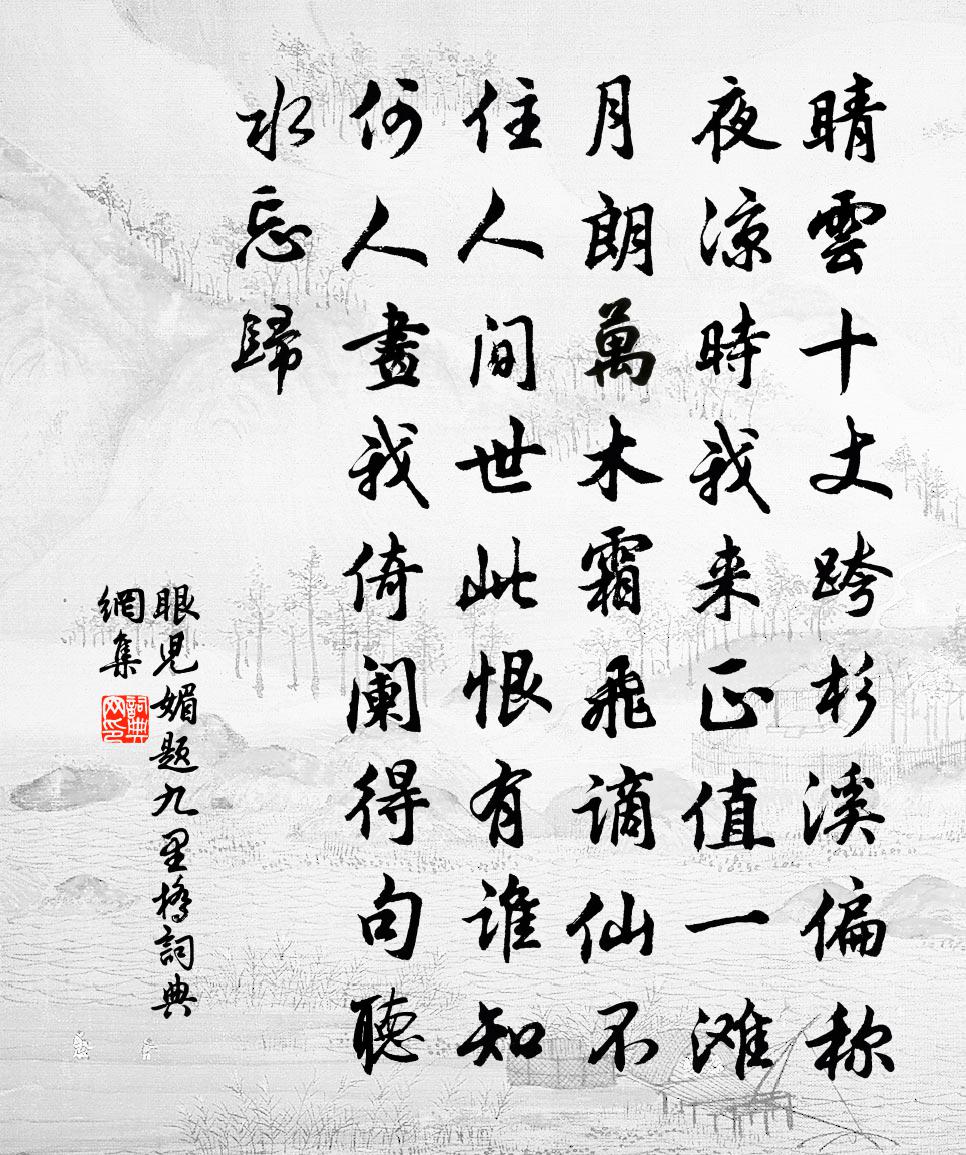 晴雲十丈跨杉溪偏称
夜涼時我来正值一滩
月朗萬木霜飛謫仙不
住人間世此恨有誰知
何人畫我倚阑得句聽
水忘歸
眼兒媚題九里橋詞典
網集
詞典
网印